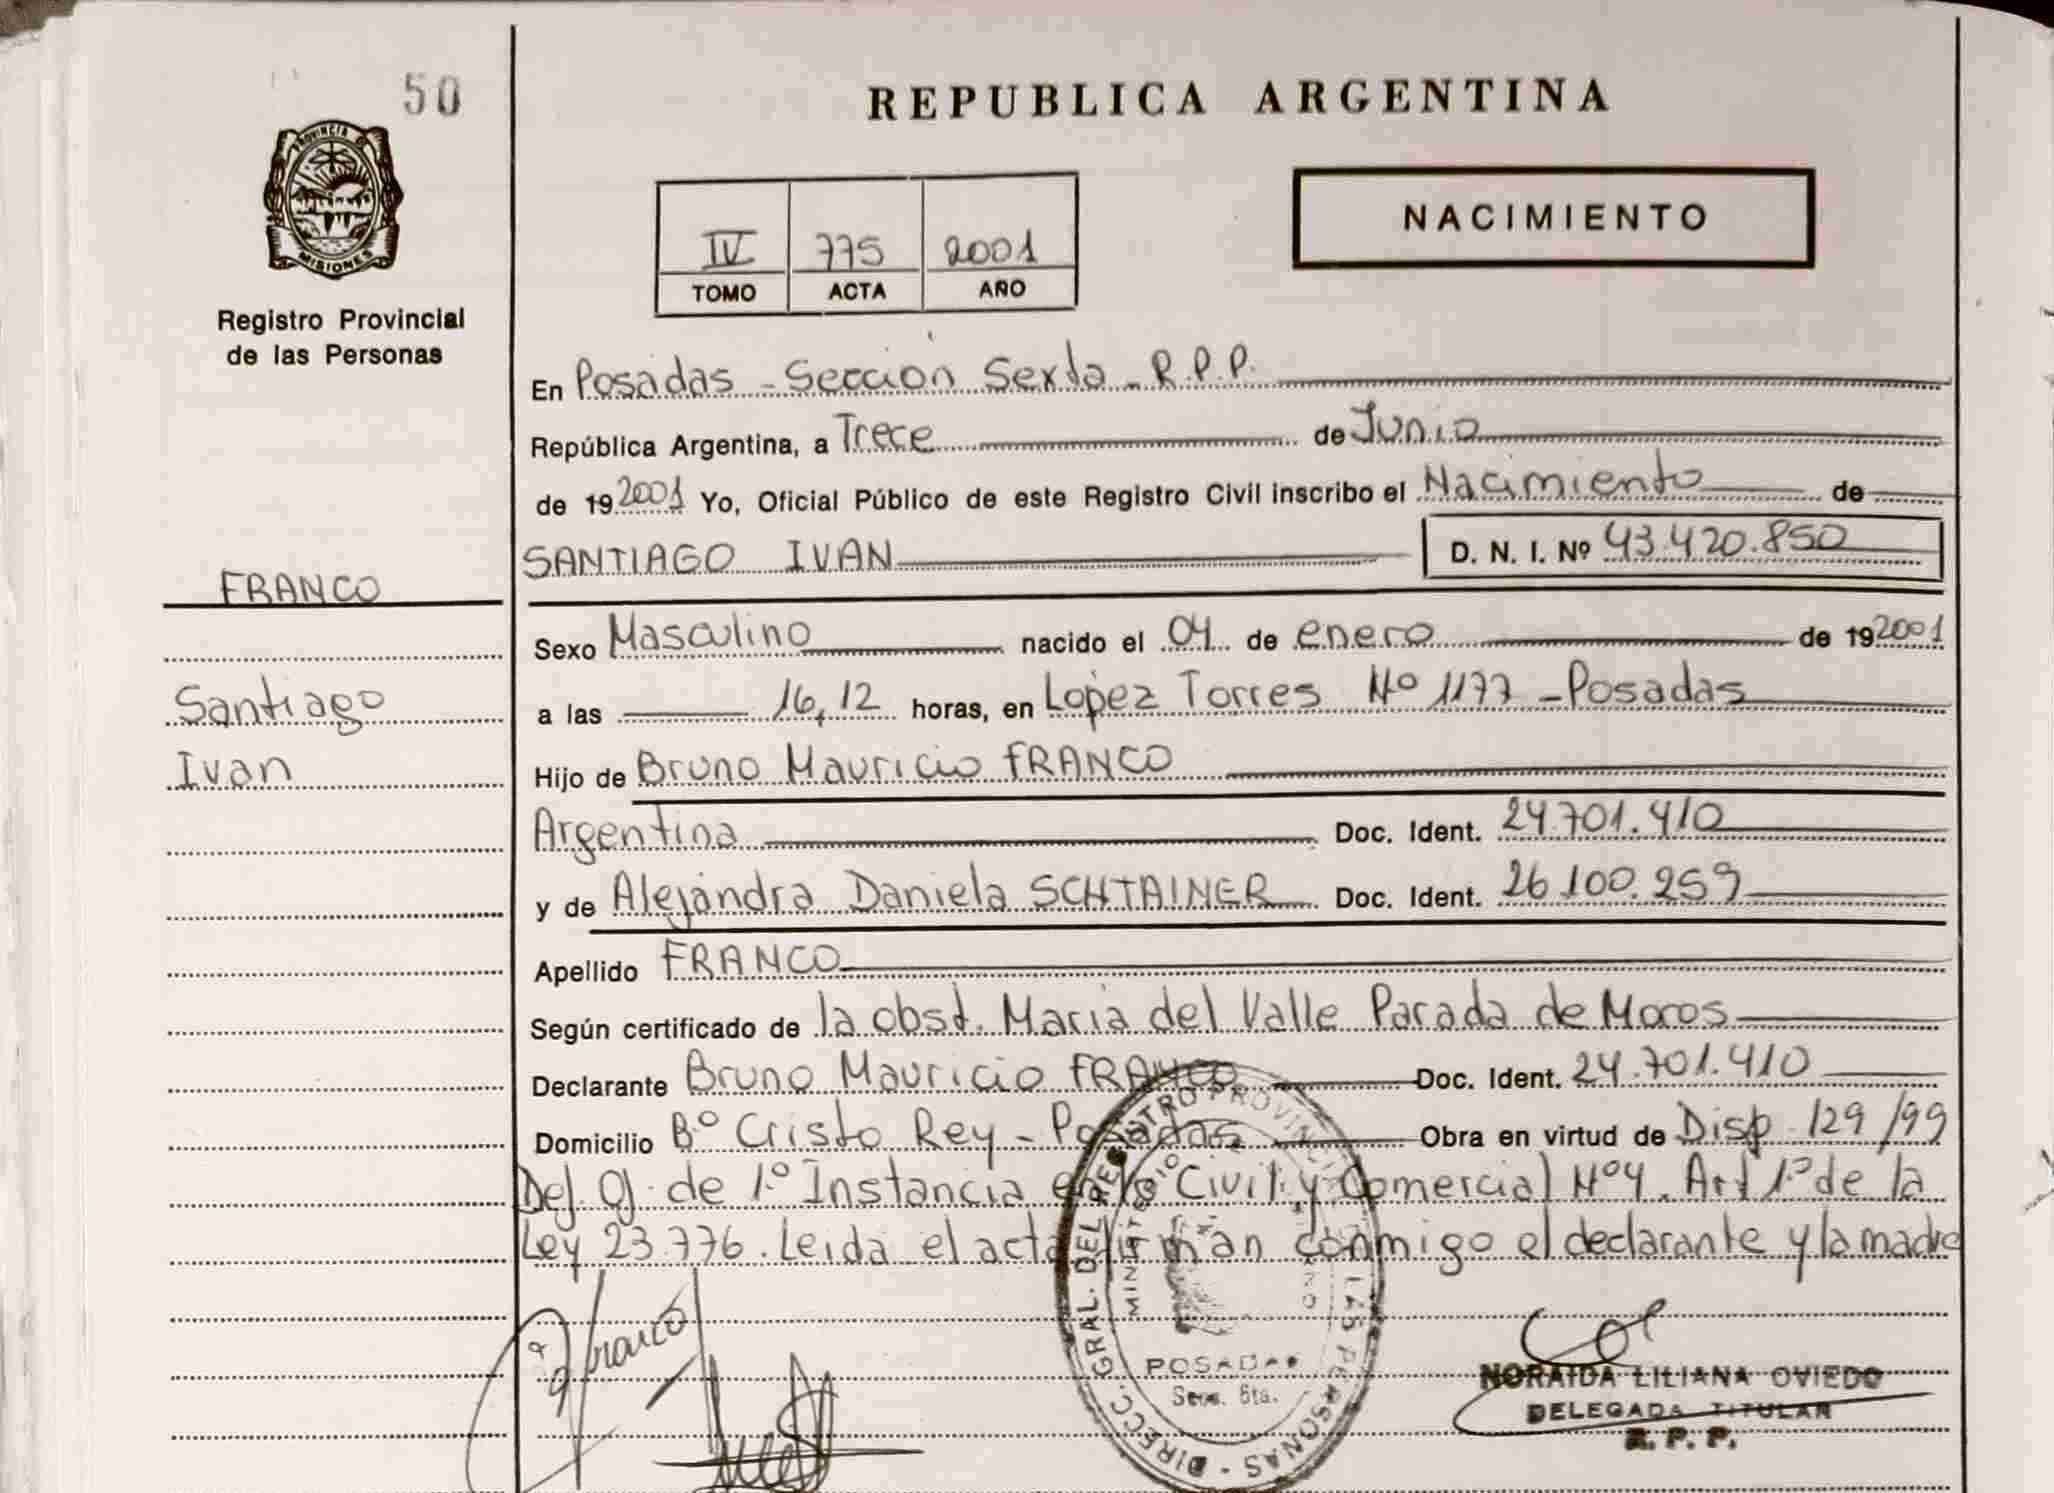 50
REPUBLICA ARGENTINA
PROVINCIA DE
MISIONES
Registro Provincial
de las Personas
NACIMIENTO
IV 775 2001
TOMO ACTA AÑO
En Posadas - Sección Sexta - R.P.P.
República Argentina, a Trece de Junio
de 19 2001 Yo, Oficial Público de este Registro Civil inscribo el Nacimiento de
SANTIAGO IVAN D. N. I. Nº 43.420.850
FRANCO
Santiago
Ivan
Sexo Masculino nacido el 04 de enero de 19 2001
a las 16,12 horas, en Lopez Torres Nº 1177 - Posadas
Hijo de Bruno Mauricio FRANCO
Argentina Doc. Ident. 24.701.410
y de Alejandra Daniela SCHTAINER Doc. Ident. 26.100.259
Apellido FRANCO
Según certificado de la obst. Maria del Valle Parada de Moros
Declarante Bruno Mauricio FRANCO Doc. Ident. 24.701.410
Domicilio Bº Cristo Rey - Posadas Obra en virtud de Disp. 129/99
de 1.º Instancia en lo Civil y Comercial Nº 4. Art 1º de la
Ley 23.776. Leida el acta firman conmigo el declarante y la madre
Franco
DIRECC. GRAL. DEL REGISTRO PROVINCIAL DE LAS PERSONAS
MINISTERIO
POSADAS
6ta.
NORAIDA LILIANA OVIEDO
DELEGADA TITULAR
R. P. P.